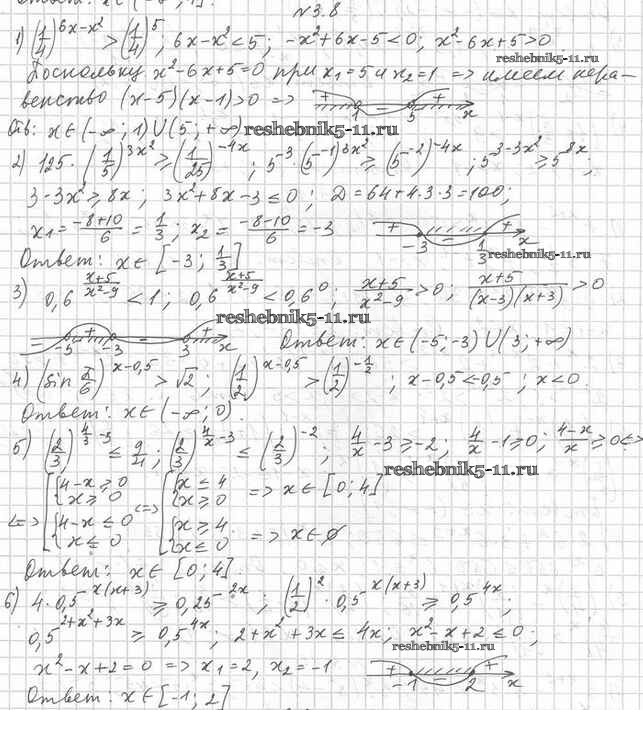 Ответ: x ∈ (-∞; 1].
N3.8
1) (1/4)^(6x-x²) > (1/4)^5; 6x-x² < 5; -x²+6x-5 < 0; x²-6x+5 > 0
reshebnik5-11.ru
Поскольку x²-6x+5=0 при x₁=5 и x₂=1 => имеем нера-
венство (x-5)(x-1)>0 => + 1 - 5 + x
Отв: x ∈ (-∞; 1) ∪ (5; +∞) reshebnik5-11.ru
2) 125 · (1/5)^(3x²) ≥ (1/25)^(-4x); 5^-3 · (5^-1)^(3x²) ≥ (5^-2)^(-4x); 5^(3-3x²) ≥ 5^(8x);
3-3x² ≥ 8x; 3x²+8x-3 ≤ 0; D = 64+4·3·3 = 100;
x₁ = (-8+10)/6 = 1/3; x₂ = (-8-10)/6 = -3 + -3 - 1/3 + x
Ответ: x ∈ [-3; 1/3] reshebnik5-11.ru
3) 0,6^((x+5)/(x²-9)) < 1; 0,6^((x+5)/(x²-9)) < 0,6^0; (x+5)/(x²-9) > 0; (x+5)/((x-3)(x+3)) > 0
reshebnik5-11.ru
- -5 + -3 - 3 + x Ответ: x ∈ (-5; -3) ∪ (3; +∞)
4) (sin π/6)^(x-0,5) > √2; (1/2)^(x-0,5) > (1/2)^(-1/2); x-0,5 < -0,5; x < 0.
Ответ: x ∈ (-∞; 0).
5) (2/3)^(4/x-3) ≤ 9/4; (2/3)^(4/x-3) ≤ (2/3)^-2; 4/x-3 ≥ -2; 4/x-1 ≥ 0; (4-x)/x ≥ 0 <=>
reshebnik5-11.ru
<=> [ { 4-x ≥ 0 <=> [ { x ≤ 4 => x ∈ [0; 4]
x ≥ 0 x ≥ 0
{ 4-x ≤ 0 { x ≥ 4 => x ∈ ∅
x ≤ 0 x ≤ 0
Ответ: x ∈ [0; 4].
6) 4 · 0,5^(x(x+3)) ≥ 0,25^(2x); (1/2)^2 · 0,5^(x(x+3)) ≥ 0,5^(4x);
0,5^(2+x²+3x) ≥ 0,5^(4x); 2+x²+3x ≤ 4x; x²-x+2 ≤ 0;
reshebnik5-11.ru
x²-x+2=0 => x₁=2, x₂=-1 + -1 - 2 + x
Ответ: x ∈ [-1; 2]